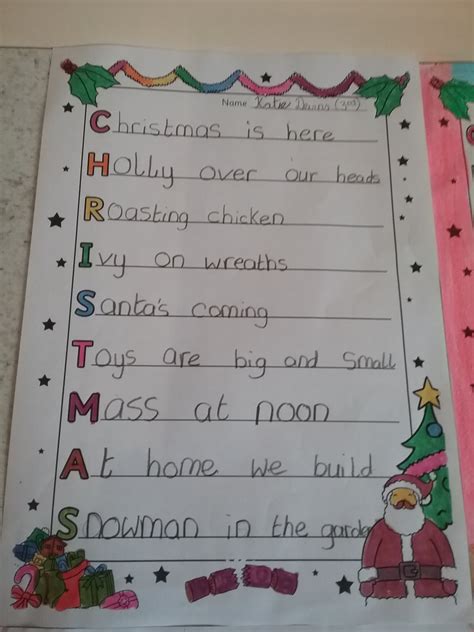 Name Katie Downs (3rd)
Christmas is here
Holly over our heads
Roasting chicken
Ivy on wreaths
Santa's coming
Toys are big and small
Mass at noon
At home we build
Snowman in the garden